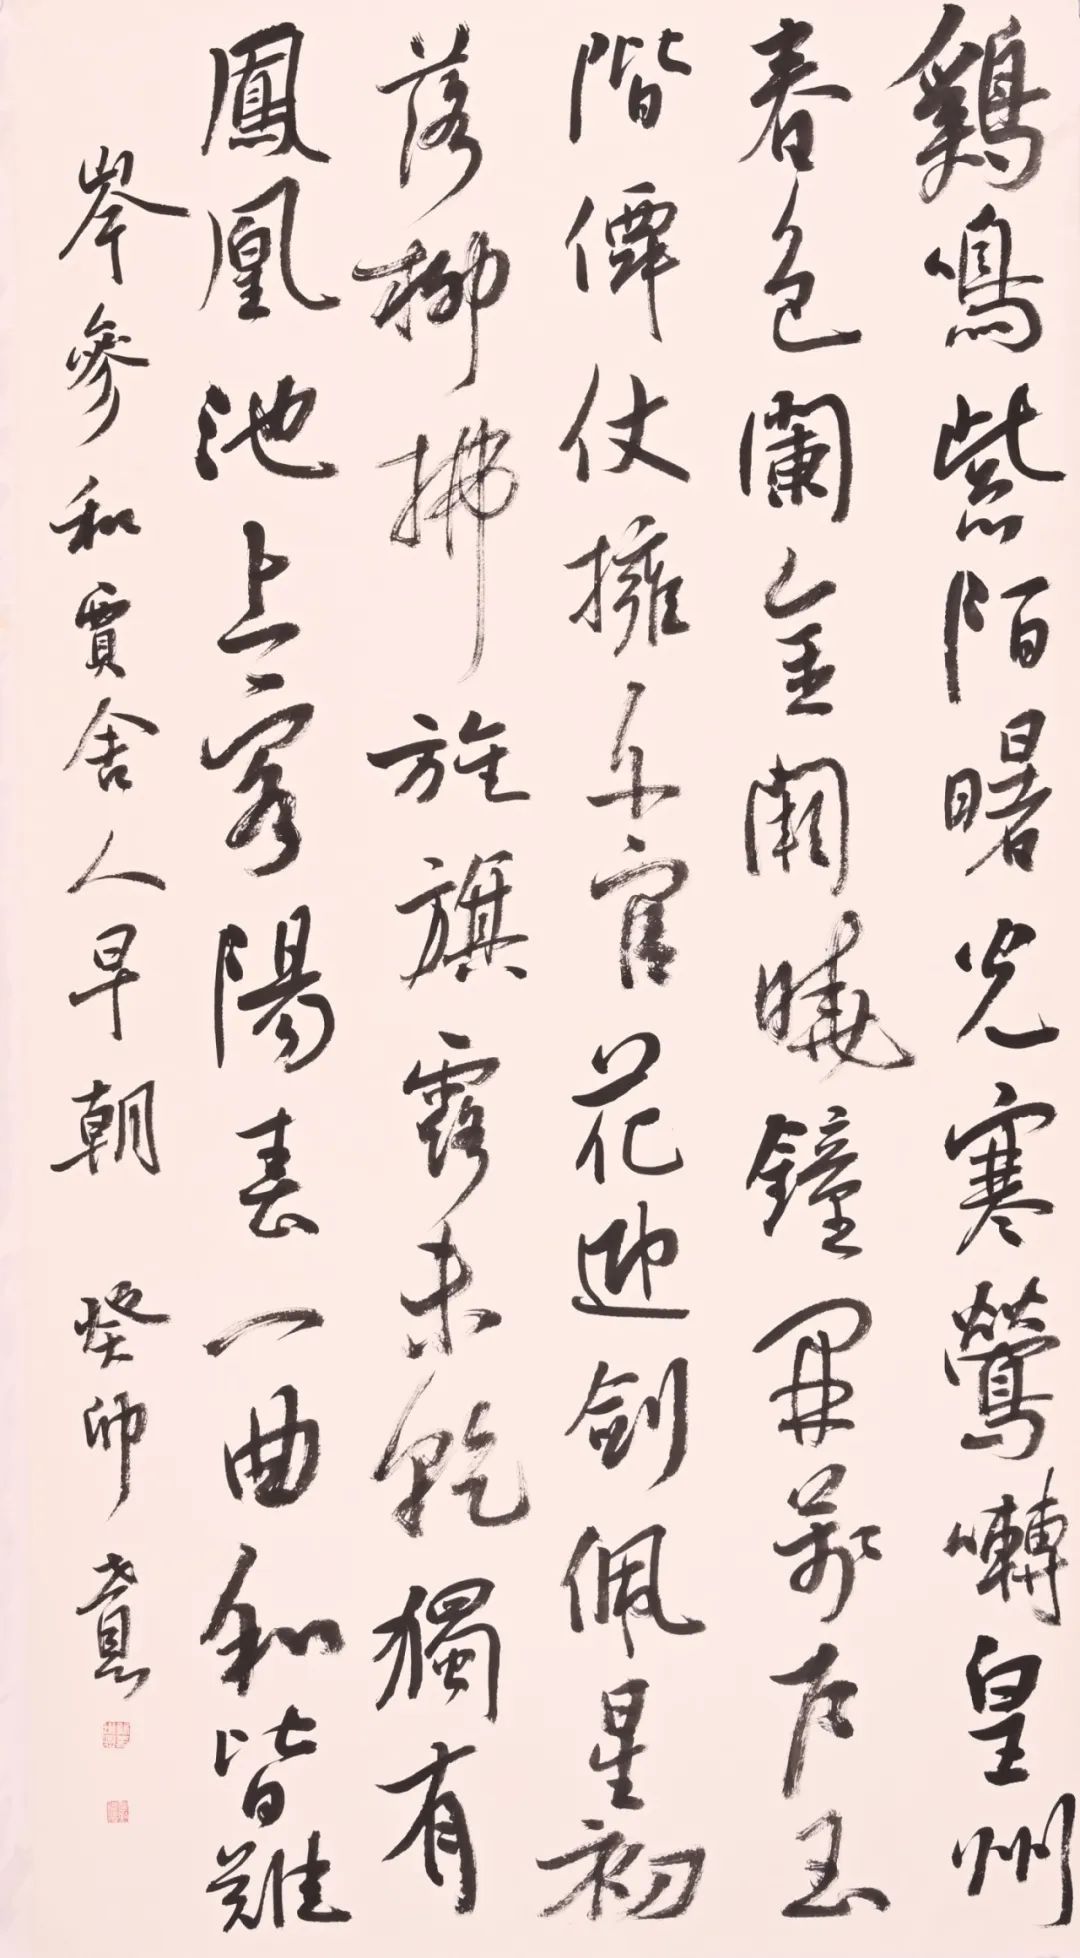 鷄鳴紫陌曙光寒鶯囀皇州
春色闌金闕曉鐘開萬户玉
階僊仗擁千官花迎劍佩星初
落柳拂旌旗露未乾獨有
鳳凰池上客陽春一曲和皆難
岑參和賈舍人早朝 癸卯